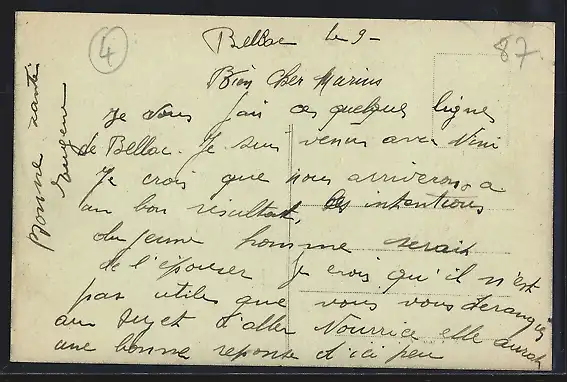 4
87
Bellac le 9-
Bien cher Marius
Je vous fais ces quelques lignes
de Bellac. Je suis venus avec Nini
Je crois que nous arriverons a
un bon résultat, les intentions
du jeune homme serait
de l'épouser Je crois qu'il n'est
pas utiles que vous vous derangiez
au sujet d'aller Nourrice elle aurat
une bonne reponse d'ici peu
Bonne santé
Eugene